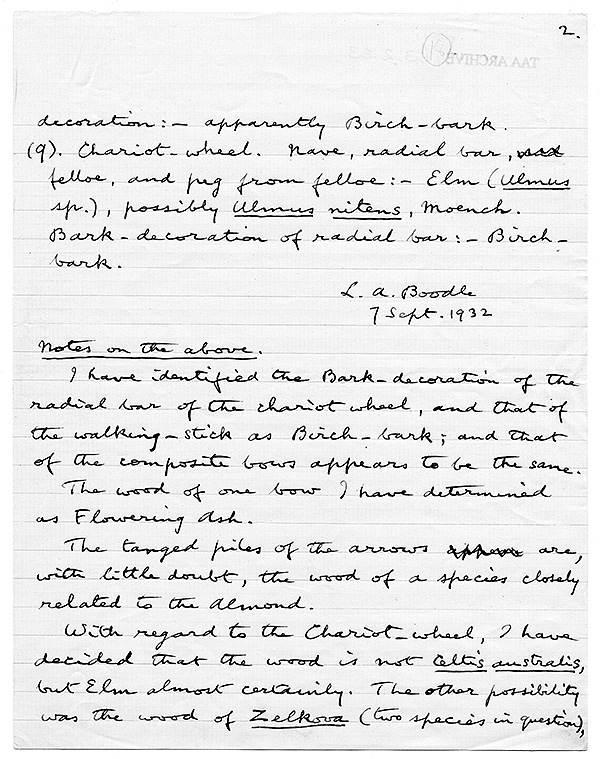 2.
TAA ARCHIVE
decoration:- apparently Birch-bark.
(9). Chariot-wheel. Nave, radial bar,
felloe, and peg from felloe:- Elm (Ulmus
sp.), possibly Ulmus nitens, Moench.
Bark-decoration of radial bar:- Birch-
bark.
L. A. Boodle
7 Sept. 1932
Notes on the above.
I have identified the Bark-decoration of the
radial bar of the chariot wheel, and that of
the walking-stick as Birch-bark; and that
of the composite bows appears to be the same.
The wood of one bow I have determined
as Flowering Ash.
The tanged piles of the arrows are,
with little doubt, the wood of a species closely
related to the Almond.
With regard to the Chariot-wheel, I have
decided that the wood is not Celtis australis,
but Elm almost certainly. The other possibility
was the wood of Zelkova (two species in question),